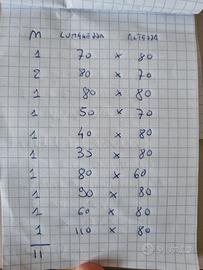 N LUNGHEZZA ALTEZZA
1 70 x 80
2 80 x 70
1 80 x 80
1 50 x 70
1 40 x 80
1 35 x 80
1 80 x 60
1 90 x 80
1 60 x 80
1 110 x 80
11